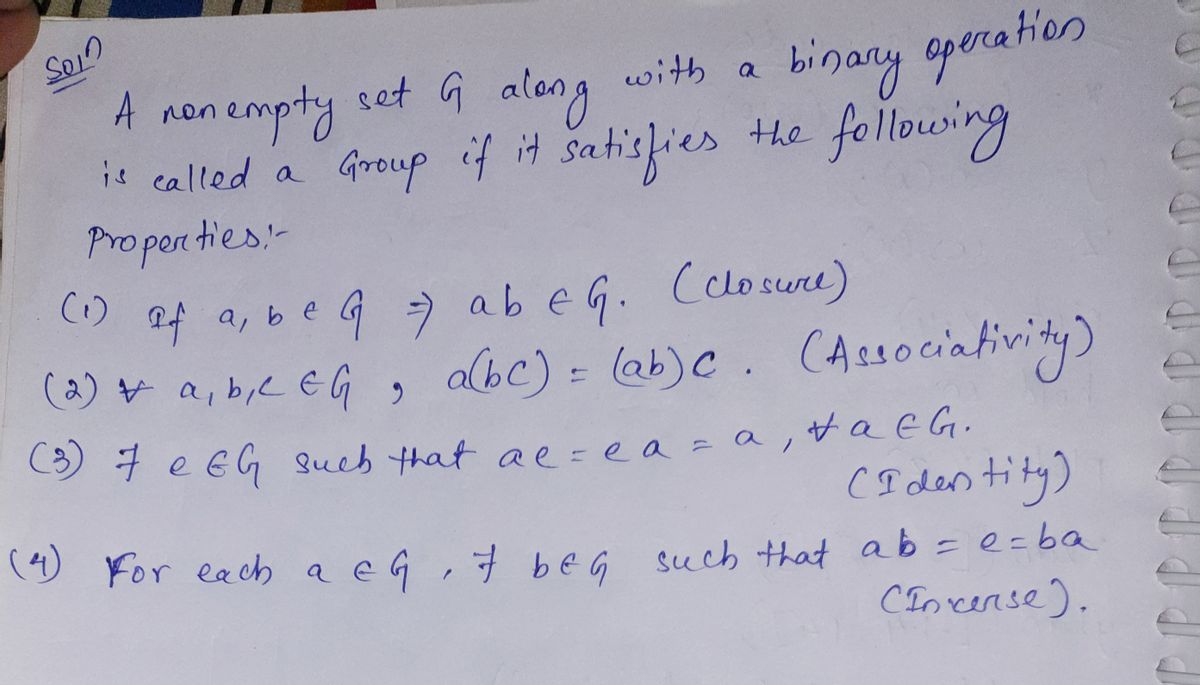 Solⁿ
A nonempty set G along with a binary operation
is called a Group if it satisfies the following
Properties:-
(1) If a, b ∈ G ⇒ ab ∈ G. (Closure)
(2) ∀ a, b, c ∈ G , a(bc) = (ab)c . (Associativity)
(3) ∃ e ∈ G such that ae = ea = a , ∀ a ∈ G.
(Identity)
(4) For each a ∈ G , ∃ b ∈ G such that ab = e = ba
(Inverse).